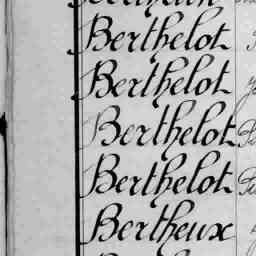 Berthelot
Berthelot
Berthelot
Berthelot
Bertheux